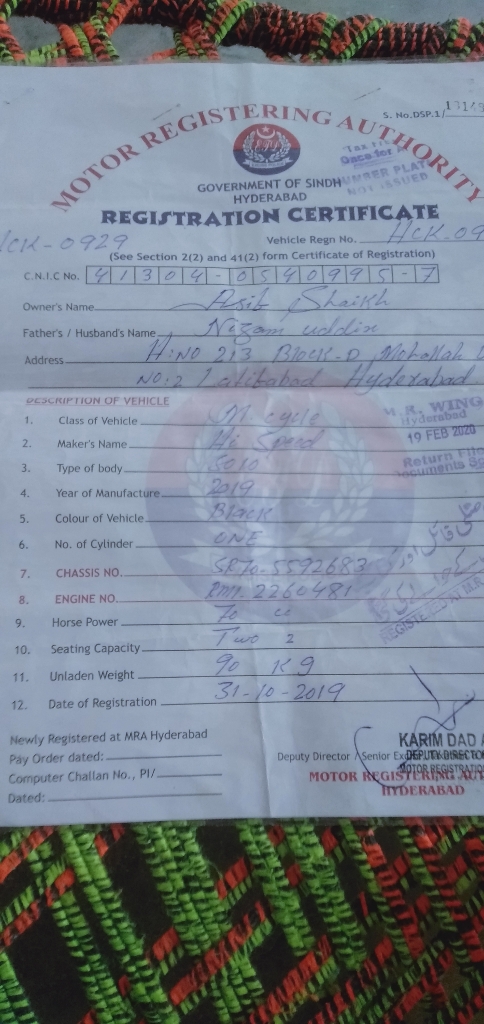 S. No.DSP.1/ 13149
MOTOR REGISTERING AUTHORITY
GOVERNMENT OF SINDH
HYDERABAD
NUMBER PLAT
NOT ISSUED
REGISTRATION CERTIFICATE
HCK-0929
Vehicle Regn No. HCK-09
(See Section 2(2) and 41(2) form Certificate of Registration)
C.N.I.C No. 41304-0540995-7
Owner's Name Asif Shaikh
Father's / Husband's Name Nizam uddin
Address H:NO 213 Block-D Mohallah U
NO:2 Latifabad Hyderabad
DESCRIPTION OF VEHICLE
M.R. WING
Hyderabad
19 FEB 2020
Return File
1. Class of Vehicle M cycle
2. Maker's Name Hi Speed
3. Type of body Solo
4. Year of Manufacture 2019
5. Colour of Vehicle Black
6. No. of Cylinder ONE
7. CHASSIS NO. SR70-5592683
8. ENGINE NO. 2260481
9. Horse Power 70 cc
10. Seating Capacity Two 2
11. Unladen Weight 90 Kg
12. Date of Registration 31-10-2019
Newly Registered at MRA Hyderabad
Pay Order dated:
Computer Challan No., PI/
Dated:
KARIM DAD A
Deputy Director / Senior Ex
DEPUTY DIRECTO
MOTOR REGISTRATIO
MOTOR REGISTERING AUT
HYDERABAD